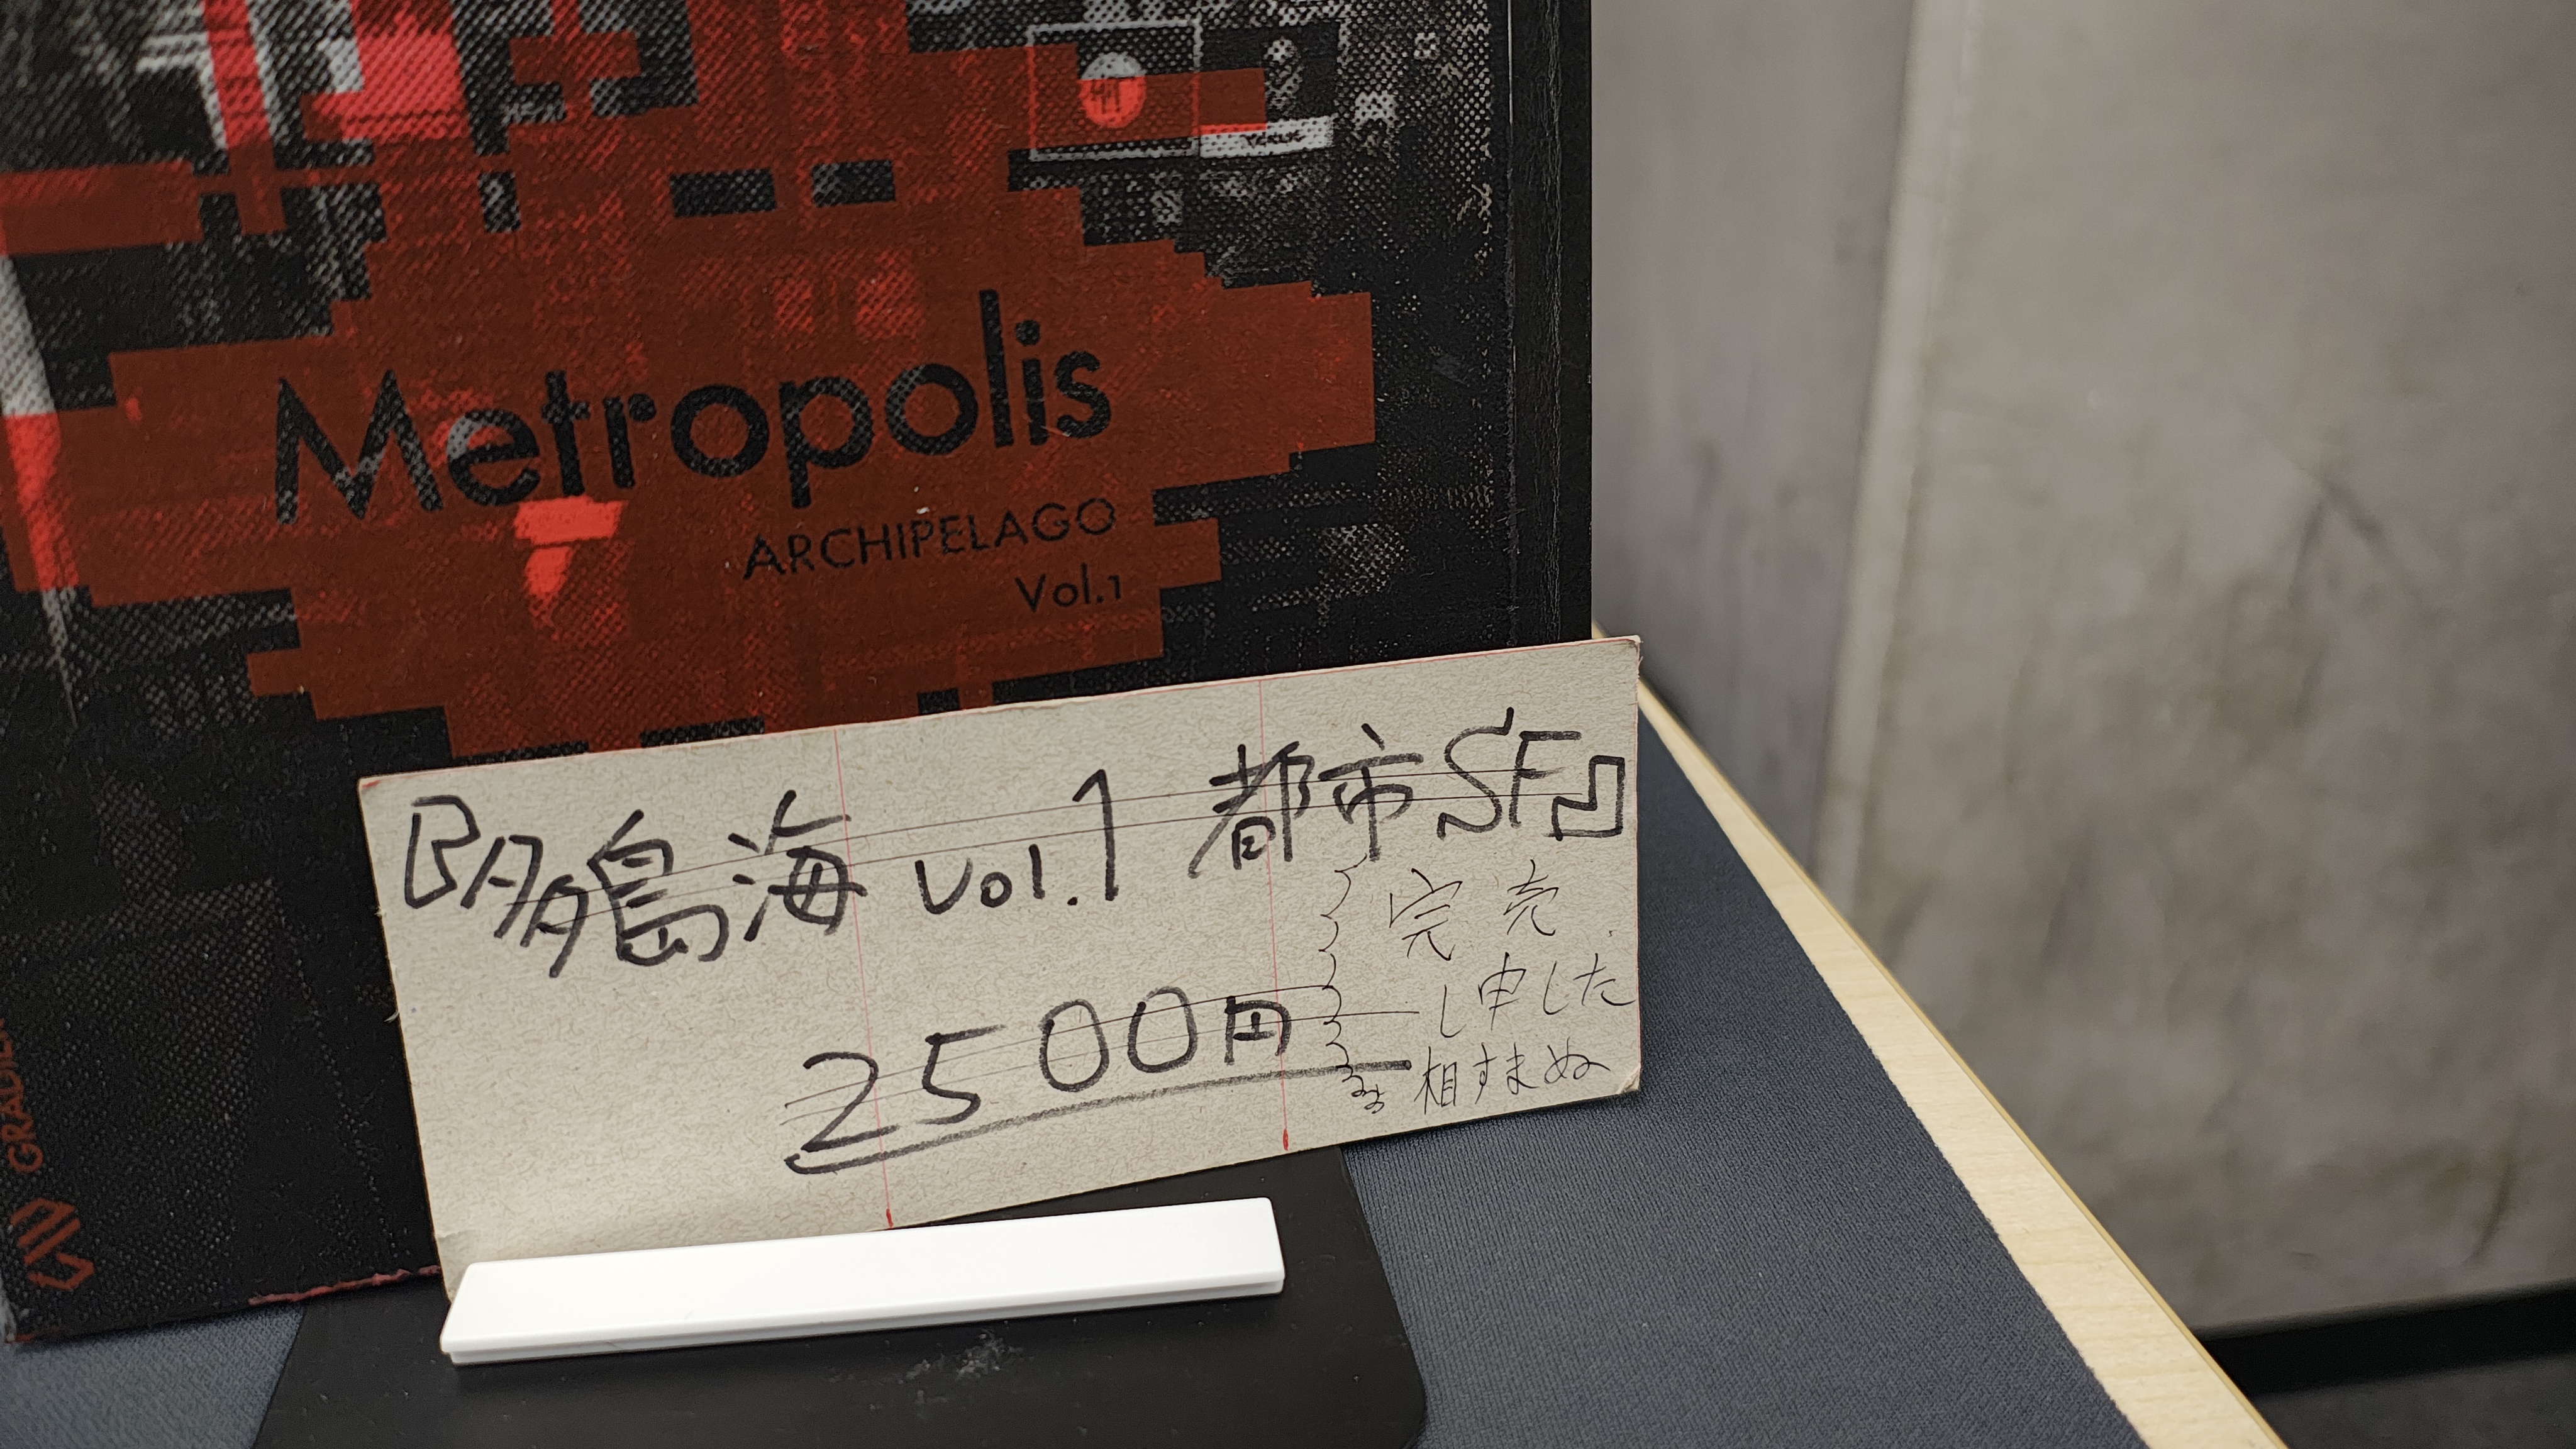 Metropolis
ARCHIPELAGO
Vol.1
『多島海 vol.1 都市SF』
2500円
完売
し申した
相すまぬ